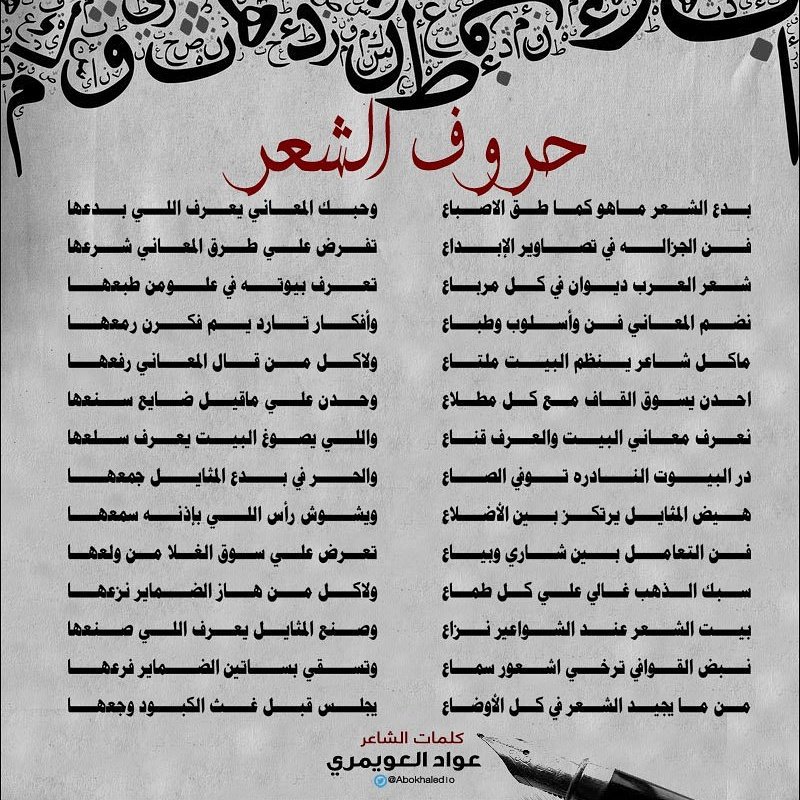 حروف الشعر
بدع الشعر ماهو كما طق الاصباع وحبك المعاني يعرف اللي بدعها
فن الجزاله في تصاوير الإبداع تفرض علي طرق المعاني شرعها
شعر العرب ديوان في كل مرباع تعرف بيوته في علومن طبعها
نضم المعاني فن وأسلوب وطباع وأفكار تارد يم فكرن رمعها
ماكل شاعر ينظم البيت ملتاع ولاكل من قال المعاني رفعها
احدن يسوق القاف مع كل مطلاع وحدن علي ماقيل ضايع سنعها
نعرف معاني البيت والعرف قناع واللي يصوغ البيت يعرف سلعها
در البيوت النادره توفي الصاع والحر في بدع المثايل جمعها
هيض المثايل يرتكز بين الأضلاع ويشوش رأس اللي بإذنه سمعها
فن التعامل بين شاري وبياع تعرض علي سوق الغلا من ولعها
سبك الذهب غالي علي كل طماع ولاكل من هاز الضماير نزعها
بيت الشعر عند الشواعير نزاع وصنع المثايل يعرف اللي صنعها
نبض القوافي ترخي اشعور سماع وتسقي بساتين الضماير فرعها
من ما يجيد الشعر في كل الأوضاع يجلس قبل غث الكبود وجعها
كلمات الشاعر
عواد العويمري
@Abokhaled10